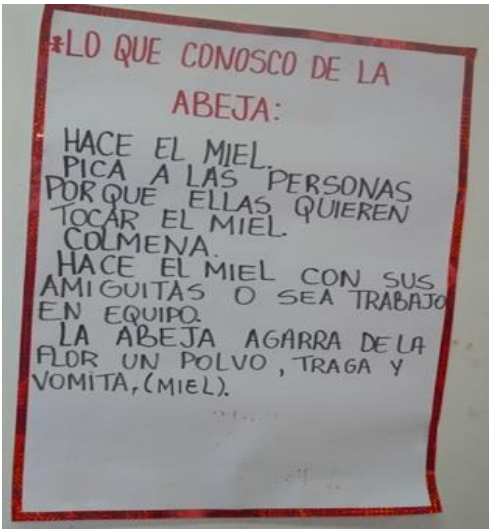 *LO QUE CONOSCO DE LA
ABEJA:
HACE EL MIEL.
PICA A LAS PERSONAS
PORQUE ELLAS QUIEREN
TOCAR EL MIEL.
COLMENA.
HACE EL MIEL CON SUS
AMIGUITAS O SEA TRABAJO
EN EQUIPO.
LA ABEJA AGARRA DE LA
FLOR UN POLVO, TRAGA Y
VOMITA, (MIEL).